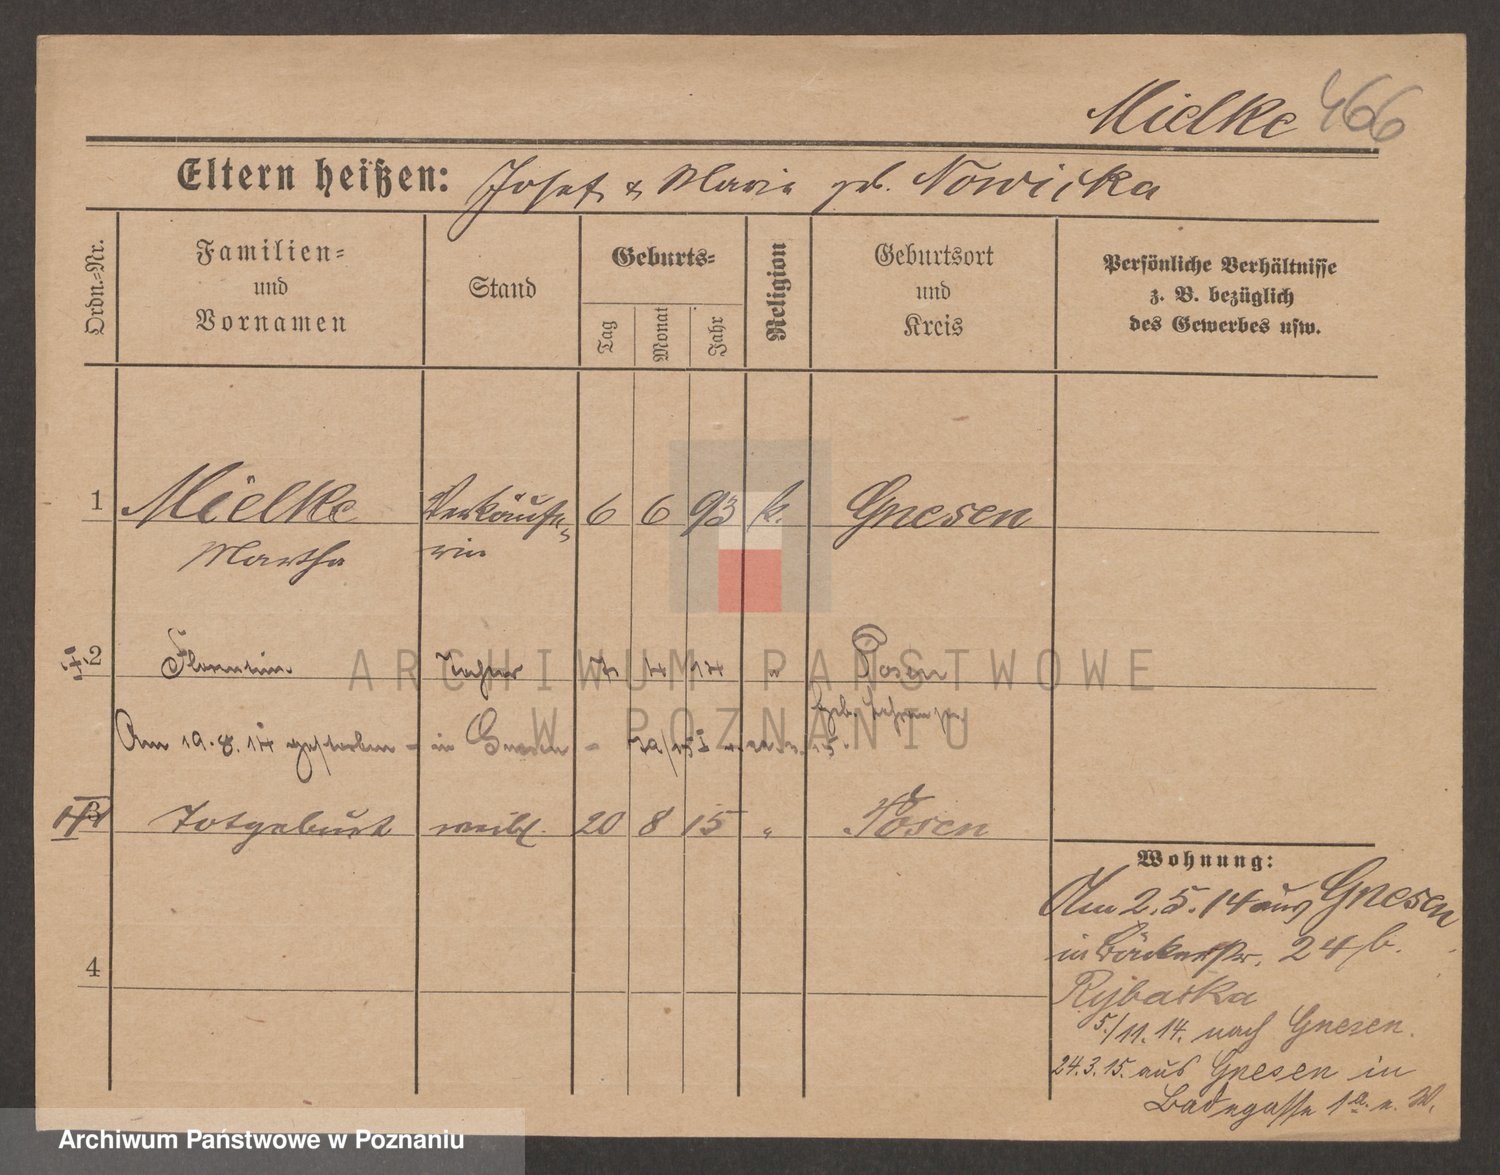 Mielke 466
Eltern heißen: Josef & Marie geb. Nowicka
Ordn.=Nr.
Familien= und Vornamen
Stand
Geburts=
Tag
Monat
Jahr
Religion
Geburtsort und Kreis
Persönliche Verhältnisse z. B. bezüglich des Gewerbes usw.
1 Mielke Verkäufe- 6 6 93 k. Gnesen
Martha rin
2 Florentine Tochter 7 4 14 " Posen
Am 19.8.14 gestorben - in Gnesen -
3 Totgeburt weibl. 20 8 15 " Posen
4
Wohnung:
Am 2.5.14 aus Gnesen
in Bäckerstr. 24 b.
Rybacka
5./11.14. nach Gnesen.
24.3.15. aus Gnesen in
Badegasse 1a. e. W.
ARCHIWUM PAŃSTWOWE
W POZNANIU
Archiwum Państwowe w Poznaniu